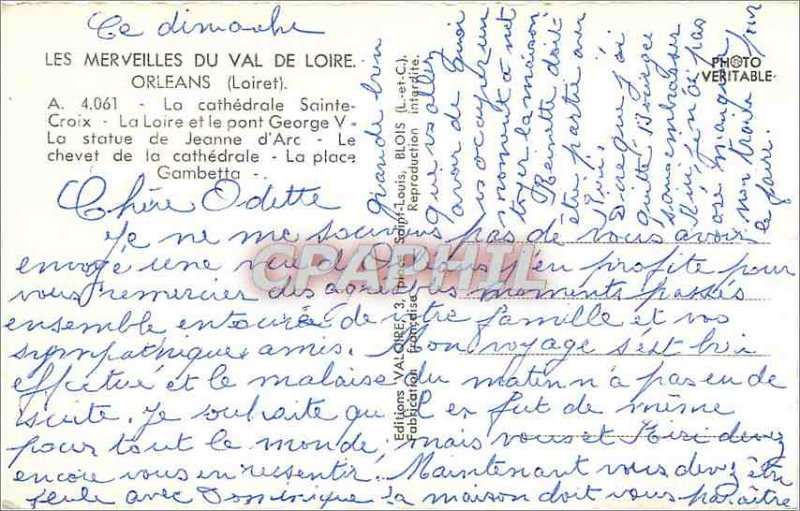 Ce dimanche
LES MERVEILLES DU VAL DE LOIRE.
ORLEANS (Loiret).
A. 4.061 - La cathédrale Sainte-
Croix - La Loire et le pont George V -
La statue de Jeanne d'Arc - Le
chevet de la cathédrale - La place
Gambetta -
PHOTO
VERITABLE
Chère Odette
Je ne me souviens pas de vous avoir
envoyé une vue d'Orléans j'en profite pour
vous remercier des agréables moments passés
ensemble entourée de votre famille et vos
sympathiques amis. Mon voyage s'est bien
effectué et le malaise du matin n'a pas eu de
suite. Je souhaite qu'il en fut de même
pour tout le monde, mais vous et devez
encore vous en ressentir. Maintenant vous devez être
seule avec Dominique la maison doit vous paraître
grande bien
que vous allez
avoir de quoi
vs occuper un
moment à net
toyer la maison
Reinette doit
être partie au
Dire que j'ai
quitté Bourges
sans embrasser
qui je n'ai pas
osé manquer
mon train pour
le faire.
Editions VALOIRE, 3, place Saint-Louis, BLOIS (L.-et-C.).
Fabrication française Reproduction interdite.
CPAPHIL